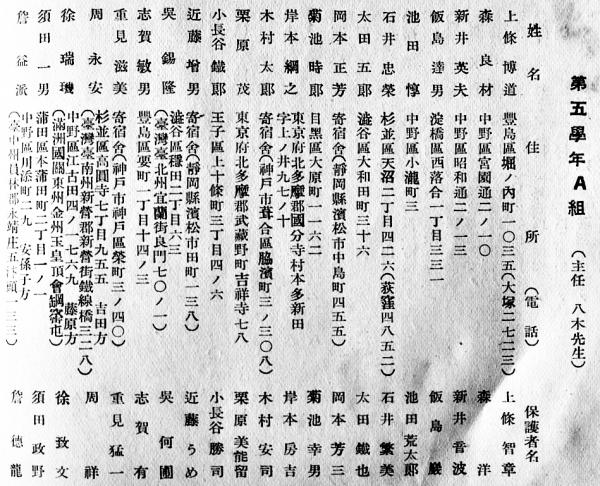 第五學年A組 (主任 八木先生)
姓名 住所 (電話) 保護者名
上條博道 豊島區堀ノ內町一〇三五(大塚二七二三) 上條智章
森良材 中野區宮園通二ノ一〇 森洋
新井英夫 中野區昭和通二ノ一三 新井音波
飯島達男 淀橋區西落合一丁目三三一 飯島嚴
池田惇 中野區小瀧町三 池田荒太郎
石井忠榮 杉並區天沼二丁目四二六(荻窪四八五二) 石井繁美
太田五郎 澁谷區大和田町三十六 太田鐵也
岡本正芳 寄宿舍(靜岡縣濱松市中島町四五五) 岡本芳三
菊池時郎 目黑區大原町一一六二 菊池幸男
岸本綱之 東京府北多摩郡國分寺村本多新田 岸本房吉
字上ノ井九七ノ十
木村太郎 寄宿舍(神戶市葺合區脇濱町三ノ三〇八) 木村安司
栗原茂 東京府北多摩郡武藏野町吉祥寺七八 栗原美能留
小長谷鐵郎 王子區上十條町三丁目四ノ六 小長谷勝司
近藤增男 寄宿舍(靜岡縣濱松市田町一三八) 近藤うめ
吳錫隆 澁谷區穩田二丁目六三 吳何圃
(臺灣臺北州宜蘭街良門七〇ノ一)
志賀敏男 豊島區要町一丁目十四ノ三 志賀有
重見滋美 寄宿舍(神戶市神戶區榮町三ノ四〇) 重見猛一
周永安 杉並區高圓寺七丁目九五五 吉田方 周祥
(臺灣臺南州新營郡新營街鐵線橋三二八)
徐瑞璣 中野區江古田四ノ一七六九 藤原方 徐致文
(滿洲國關東州金州玉皇頂會 家屯)
須田一男 蒲田區本蒲田町二丁目一ノ一 須田政野
詹益派 中野區川添町二九 安孫子方 詹德龍
(臺中州員林郡永靖庄五汴頭一三三)